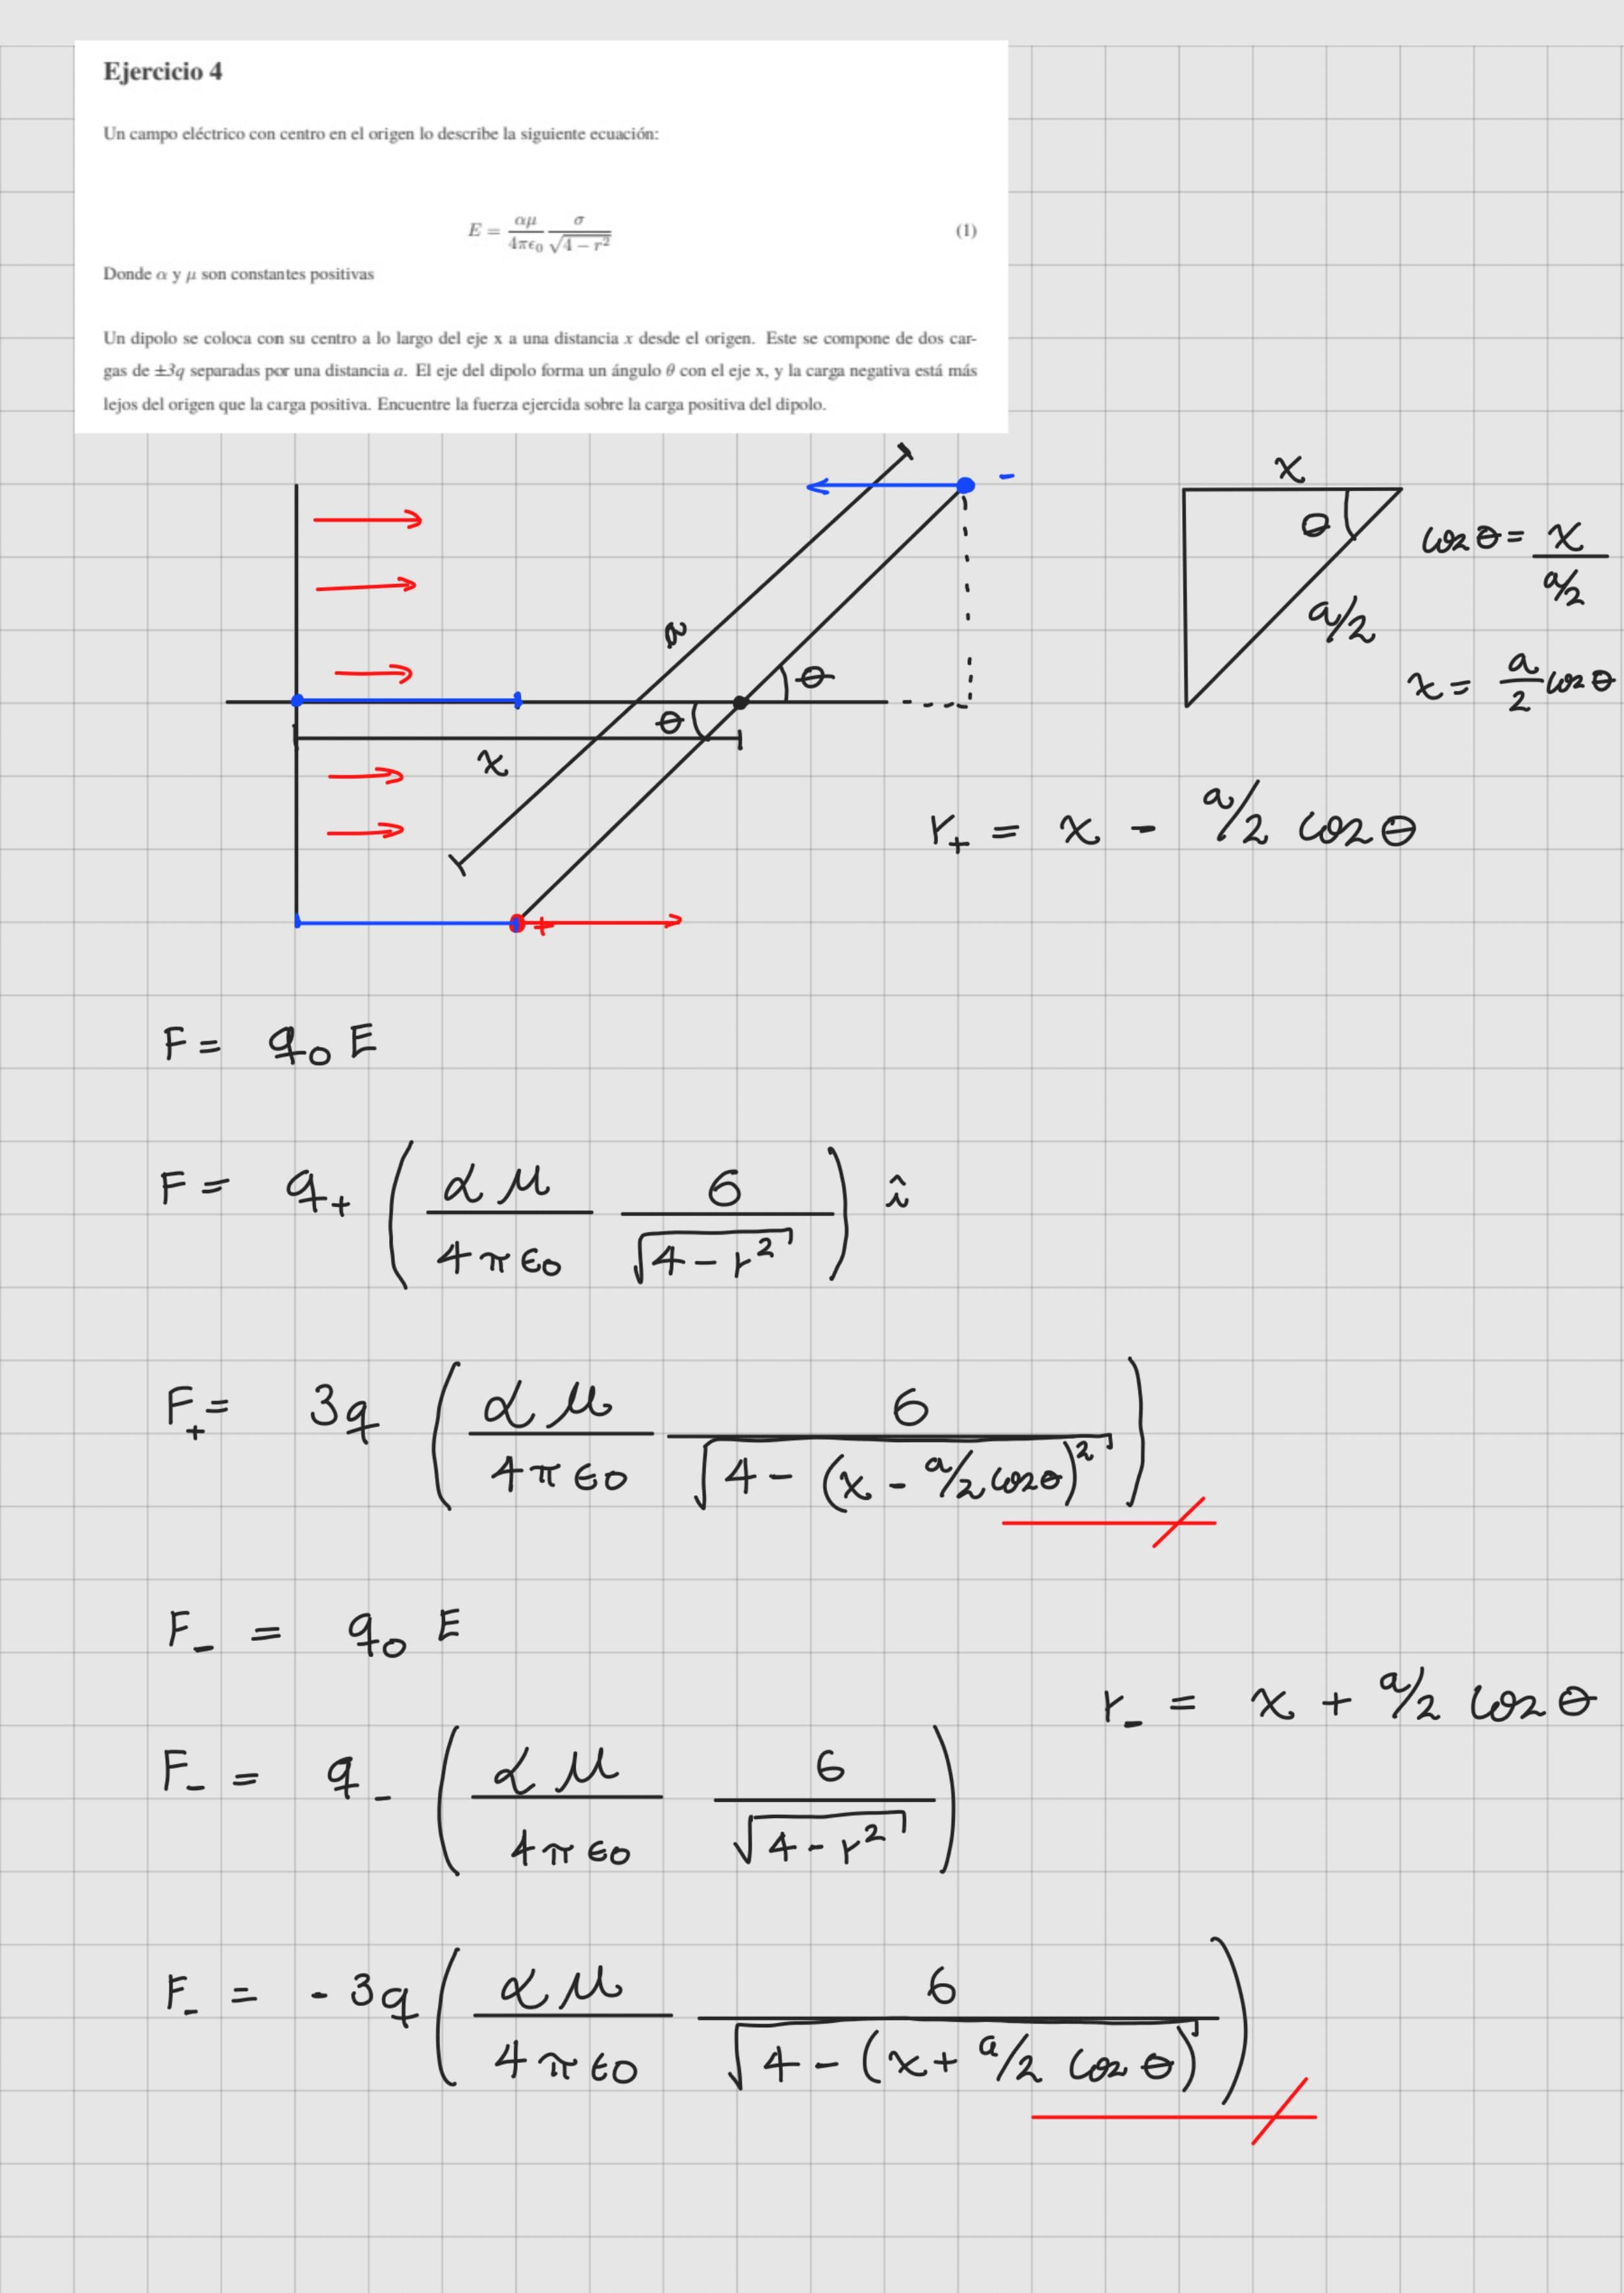 Ejercicio 4
Un campo eléctrico con centro en el origen lo describe la siguiente ecuación:
E = \frac{αμ}{4πϵ₀} \frac{σ}{\sqrt{4 − r²}} (1)
Donde α y μ son constantes positivas
Un dipolo se coloca con su centro a lo largo del eje x a una distancia x desde el origen. Este se compone de dos car-
gas de ±3q separadas por una distancia a. El eje del dipolo forma un ángulo θ con el eje x, y la carga negativa está más
lejos del origen que la carga positiva. Encuentre la fuerza ejercida sobre la carga positiva del dipolo.
-
a
θ
θ
x
+
x
θ
a/2
cos θ = \frac{x}{a/2}
x = \frac{a}{2} cos θ
r₊ = x - a/2 cos θ
F = q₀ E
F = q₊ ( \frac{α μ}{4 π ϵ₀} \frac{6}{\sqrt{4 - r²}} ) î
F₊ = 3q ( \frac{α μ}{4 π ϵ₀} \frac{6}{\sqrt{4 - (x - a/2 cos θ)²}} )
F₋ = q₀ E
r₋ = x + a/2 cos θ
F₋ = q₋ ( \frac{α μ}{4 π ϵ₀} \frac{6}{\sqrt{4 - r²}} )
F₋ = - 3q ( \frac{α μ}{4 π ϵ₀} \frac{6}{\sqrt{4 - (x + a/2 cos θ)}} )